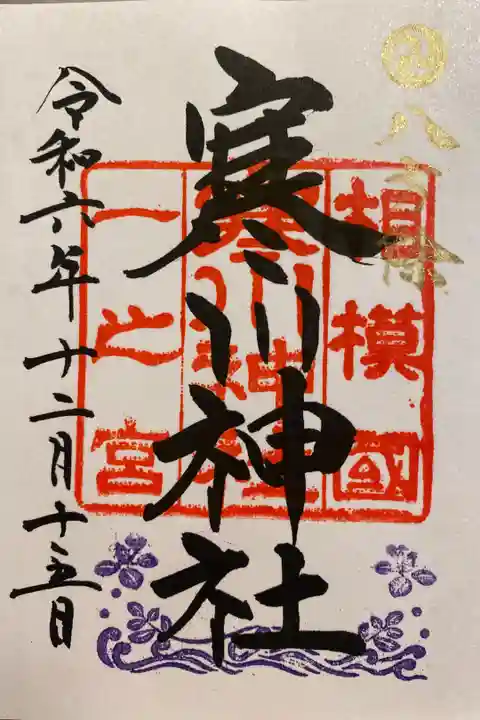 八方除
寒川神社
相模國
寒川神社
一之宮
令和六年十二月十五日